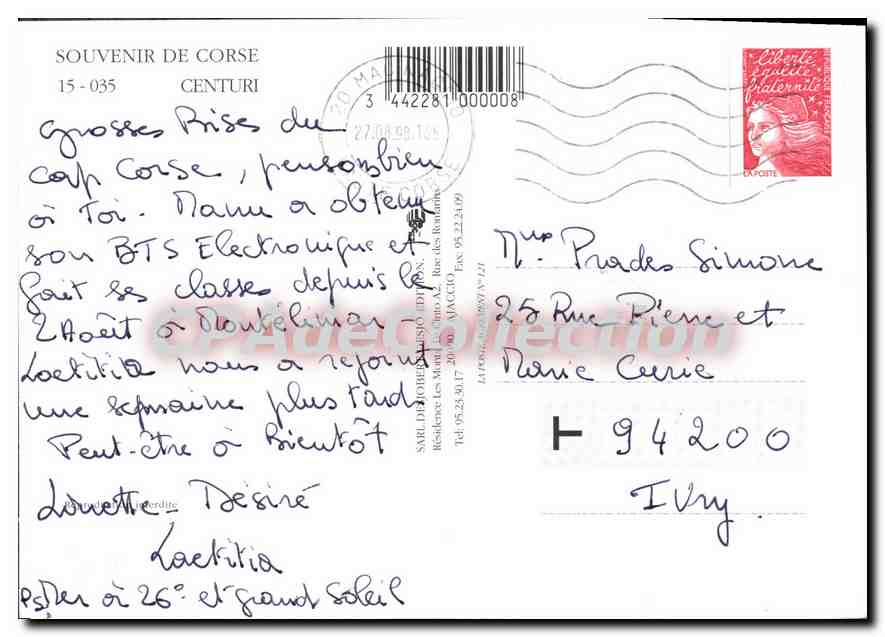 SOUVENIR DE CORSE
15 - 035 CENTURI
Grosses Bises du
Cap Corse, pensons bien
à Toi. Manu a obtenu
son BTS Electronique et
fait ses classes depuis le
2 Août à Montélimar -
Laetitia nous a rejoint
une semaine plus tard
Peut-être à Bientôt
Linette - Désiré
Laetitia
Ps Mer à 26° et grand Soleil
Reproduction interdite
3 442281 000008
27.08.98
CORSE
Résidence Les Monts du Cinto A2, Rue des Romarins
20090 AJACCIO
Tel: 95.23.30.17 Fax: 95.22.24.09
LA POSTE AGREMENT N° 121
liberté
égalité
fraternité
RÉPUBLIQUE FRANÇAISE
LA POSTE
Prades Simone
25 Rue Pierre et
Marie Curie
94200
Ivry.
CPAdeCollection